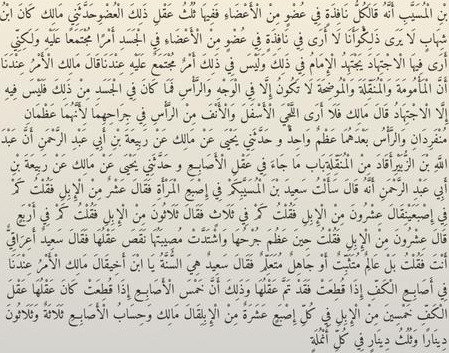 بْنِ الْمُسَيَّبِ أَنَّهُ قَالَكُلُّ نَافِذَةٍ فِي عُضْوٍ مِنْ الْأَعْضَاءِ فَفِيهَا ثُلُثُ عَقْلِ ذَلِكَ الْعُضْوِحَدَّثَنِي مَالِك كَانَ ابْنُ
شِهَابٍ لَا يَرَى ذَلِكَوَأَنَا لَا أَرَى فِي نَافِذَةٍ فِي عُضْوٍ مِنْ الْأَعْضَاءِ فِي الْجَسَدِ أَمْرًا مُجْتَمَعًا عَلَيْهِ وَلَكِنِّي
أَرَى فِيهَا الِاجْتِهَادَ يَجْتَهِدُ الْإِمَامُ فِي ذَلِكَ وَلَيْسَ فِي ذَلِكَ أَمْرٌ مُجْتَمَعٌ عَلَيْهِ عِنْدَنَاقَالَ مَالِك الْأَمْرُ عِنْدَنَا
أَنَّ الْمَأْمُومَةَ وَالْمُنَقِّلَةَ وَالْمُوضِحَةَ لَا تَكُونُ إِلَّا فِي الْوَجْهِ وَالرَّأْسِ فَمَا كَانَ فِي الْجَسَدِ مِنْ ذَلِكَ فَلَيْسَ فِيهِ
إِلَّا الِاجْتِهَادُ قَالَ مَالِك فَلَا أَرَى اللَّحْيَ الْأَسْفَلَ وَالْأَنْفَ مِنْ الرَّأْسِ فِي جِرَاحِهِمَا لِأَنَّهُمَا عَظْمَانِ
مُنْفَرِدَانِ وَالرَّأْسُ بَعْدَهُمَا عَظْمٌ وَاحِدٌ و حَدَّثَنِي يَحْيَى عَنْ مَالِك عَنْ رَبِيعَةَ بْنِ أَبِي عَبْدِ الرَّحْمَنِ أَنَّ عَبْدَ
اللَّهِ بْنَ الزُّبَيْرِأَقَادَ مِنْ الْمُنَقِّلَةِبَاب مَا جَاءَ فِي عَقْلِ الْأَصَابِعِ و حَدَّثَنِي يَحْيَى عَنْ مَالِك عَنْ رَبِيعَةَ بْنِ
أَبِي عَبْدِ الرَّحْمَنِ أَنَّهُ قَالَ سَأَلْتُ سَعِيدَ بْنَ الْمُسَيَّبِكَمْ فِي إِصْبَعِ الْمَرْأَةِ فَقَالَ عَشْرٌ مِنْ الْإِبِلِ فَقُلْتُ كَمْ
فِي إِصْبَعَيْنِقَالَ عِشْرُونَ مِنْ الْإِبِلِ فَقُلْتُ كَمْ فِي ثَلَاثٍ فَقَالَ ثَلَاثُونَ مِنْ الْإِبِلِ فَقُلْتُ كَمْ فِي أَرْبَعٍ
قَالَ عِشْرُونَ مِنْ الْإِبِلِ فَقُلْتُ حِينَ عَظُمَ جُرْحُهَا وَاشْتَدَّتْ مُصِيبَتُهَا نَقَصَ عَقْلُهَا فَقَالَ سَعِيدٌ أَعِرَاقِيٌّ
أَنْتَ فَقُلْتُ بَلْ عَالِمٌ مُتَثَبِّتٌ أَوْ جَاهِلٌ مُتَعَلِّمٌ فَقَالَ سَعِيدٌ هِيَ السُّنَّةُ يَا ابْنَ أَخِيقَالَ مَالِك الْأَمْرُ عِنْدَنَا
فِي أَصَابِعِ الْكَفِّ إِذَا قُطِعَتْ فَقَدْ تَمَّ عَقْلُهَا وَذَلِكَ أَنَّ خَمْسَ الْأَصَابِعِ إِذَا قُطِعَتْ كَانَ عَقْلُهَا عَقْلَ
الْكَفِّ خَمْسِينَ مِنْ الْإِبِلِ فِي كُلِّ إِصْبَعٍ عَشَرَةٌ مِنْ الْإِبِلِقَالَ مَالِك وَحِسَابُ الْأَصَابِعِ ثَلَاثَةٌ وَثَلَاثُونَ
دِينَارًا وَثُلُثُ دِينَارٍ فِي كُلِّ أُنْمُلَةٍ